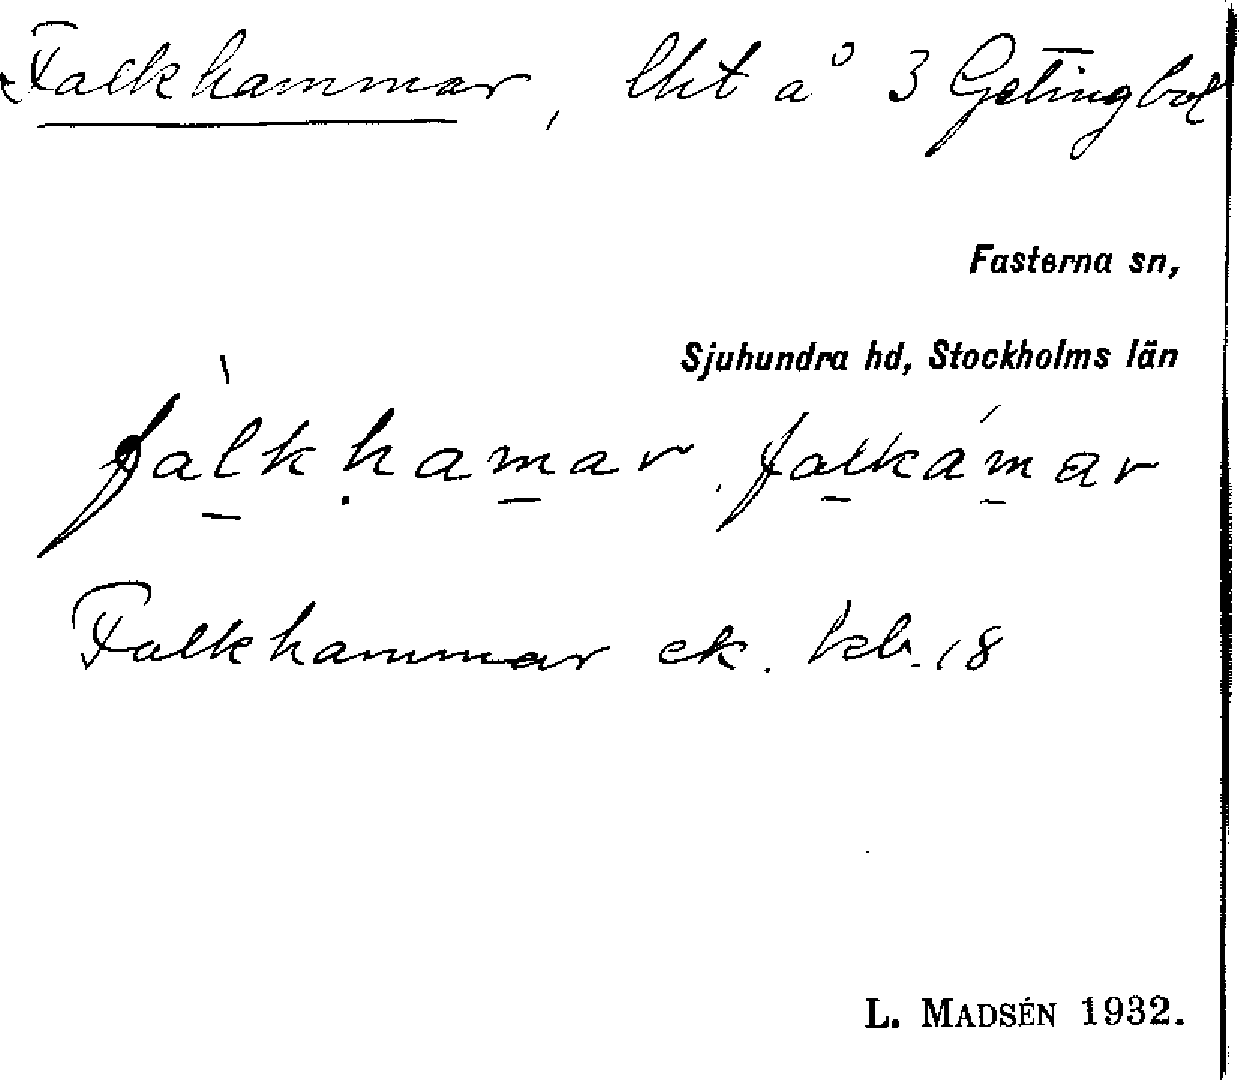 Falkhammar, lht å 3 Getingbol
Fasterna sn,
Sjuhundra hd, Stockholms län
fàlkhamar, falkámar
Falkhammar ek. kb. 18
L. MADSÉN 1932.